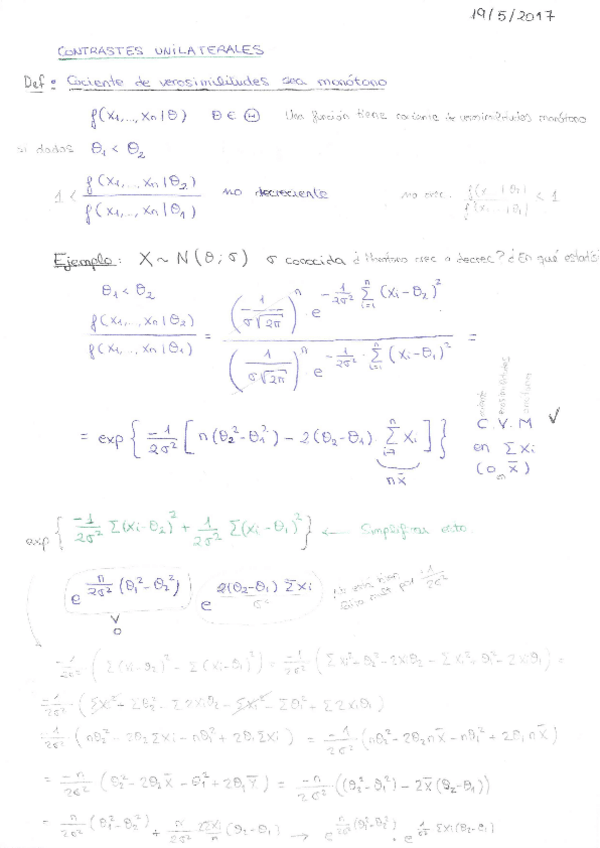 19/5/2017
CONTRASTES UNILATERALES
Def: Cociente de verosimilitudes sea monótono
f(x₁,...,xₙ|θ) θ ∈ Θ Una función tiene cociente de verosimilitudes monótono
si dados θ₁ < θ₂
1 < f(x₁,...,xₙ|θ₂) / f(x₁,...,xₙ|θ₁) no decreciente
Ejemplo: X ~ N(θ; σ) σ conocida ¿Monótono crec o decrec? ¿En qué estadís
θ₁ < θ₂
f(x₁,...,xₙ|θ₂) / f(x₁,...,xₙ|θ₁) = (1/(σ√2π))ⁿ e^(-1/2σ² Σᵢ₌₁ⁿ (xᵢ-θ₂)²) / (1/(σ√2π))ⁿ e^(-1/2σ² · Σᵢ₌₁ⁿ (xᵢ-θ₁)²) =
= exp{ -1/2σ² [ n(θ₂²-θ₁²) - 2(θ₂-θ₁) Σᵢ₌₁ⁿ xᵢ ] }
nx̄
C.V.M ✓
en Σxᵢ
(o x̄)
exp{ -1/2σ² Σ(xᵢ-θ₂)² + 1/2σ² Σ(xᵢ-θ₁)² } ← Simplificar esto
e^(n/2σ² (θ₁²-θ₂²)) e^(2(θ₂-θ₁) Σxᵢ / σ²)
v
0
-1/2σ² (Σ(xᵢ-θ₂)² - Σ(xᵢ-θ₁)²) = -1/2σ² (Σxᵢ² - θ₂² - 2xᵢθ₂ - Σxᵢ² θ₁² - 2xᵢθ₁) =
= -1/2σ² · (Σxᵢ² - Σθ₂² - Σ2xᵢθ₂ - Σxᵢ² - Σθ₁² + Σ2xᵢθ₁)
= -1/2σ² (nθ₂² - 2θ₂Σxᵢ - nθ₁² + 2θ₁Σxᵢ) = -1/2σ² (nθ₂² - 2θ₂nx̄ - nθ₁² + 2θ₁nx̄)
= -n/2σ² (θ₂² - 2θ₂x̄ - θ₁² + 2θ₁x̄) = -n/2σ² ((θ₂²-θ₁²) - 2x̄(θ₂-θ₁))
= n/2σ² (θ₁²-θ₂²) + n/2σ² 2Σxᵢ/n (θ₂-θ₁) → e^(n/2σ² (θ₁²-θ₂²)) · e^(1/σ² Σxᵢ(θ₂-θ₁))